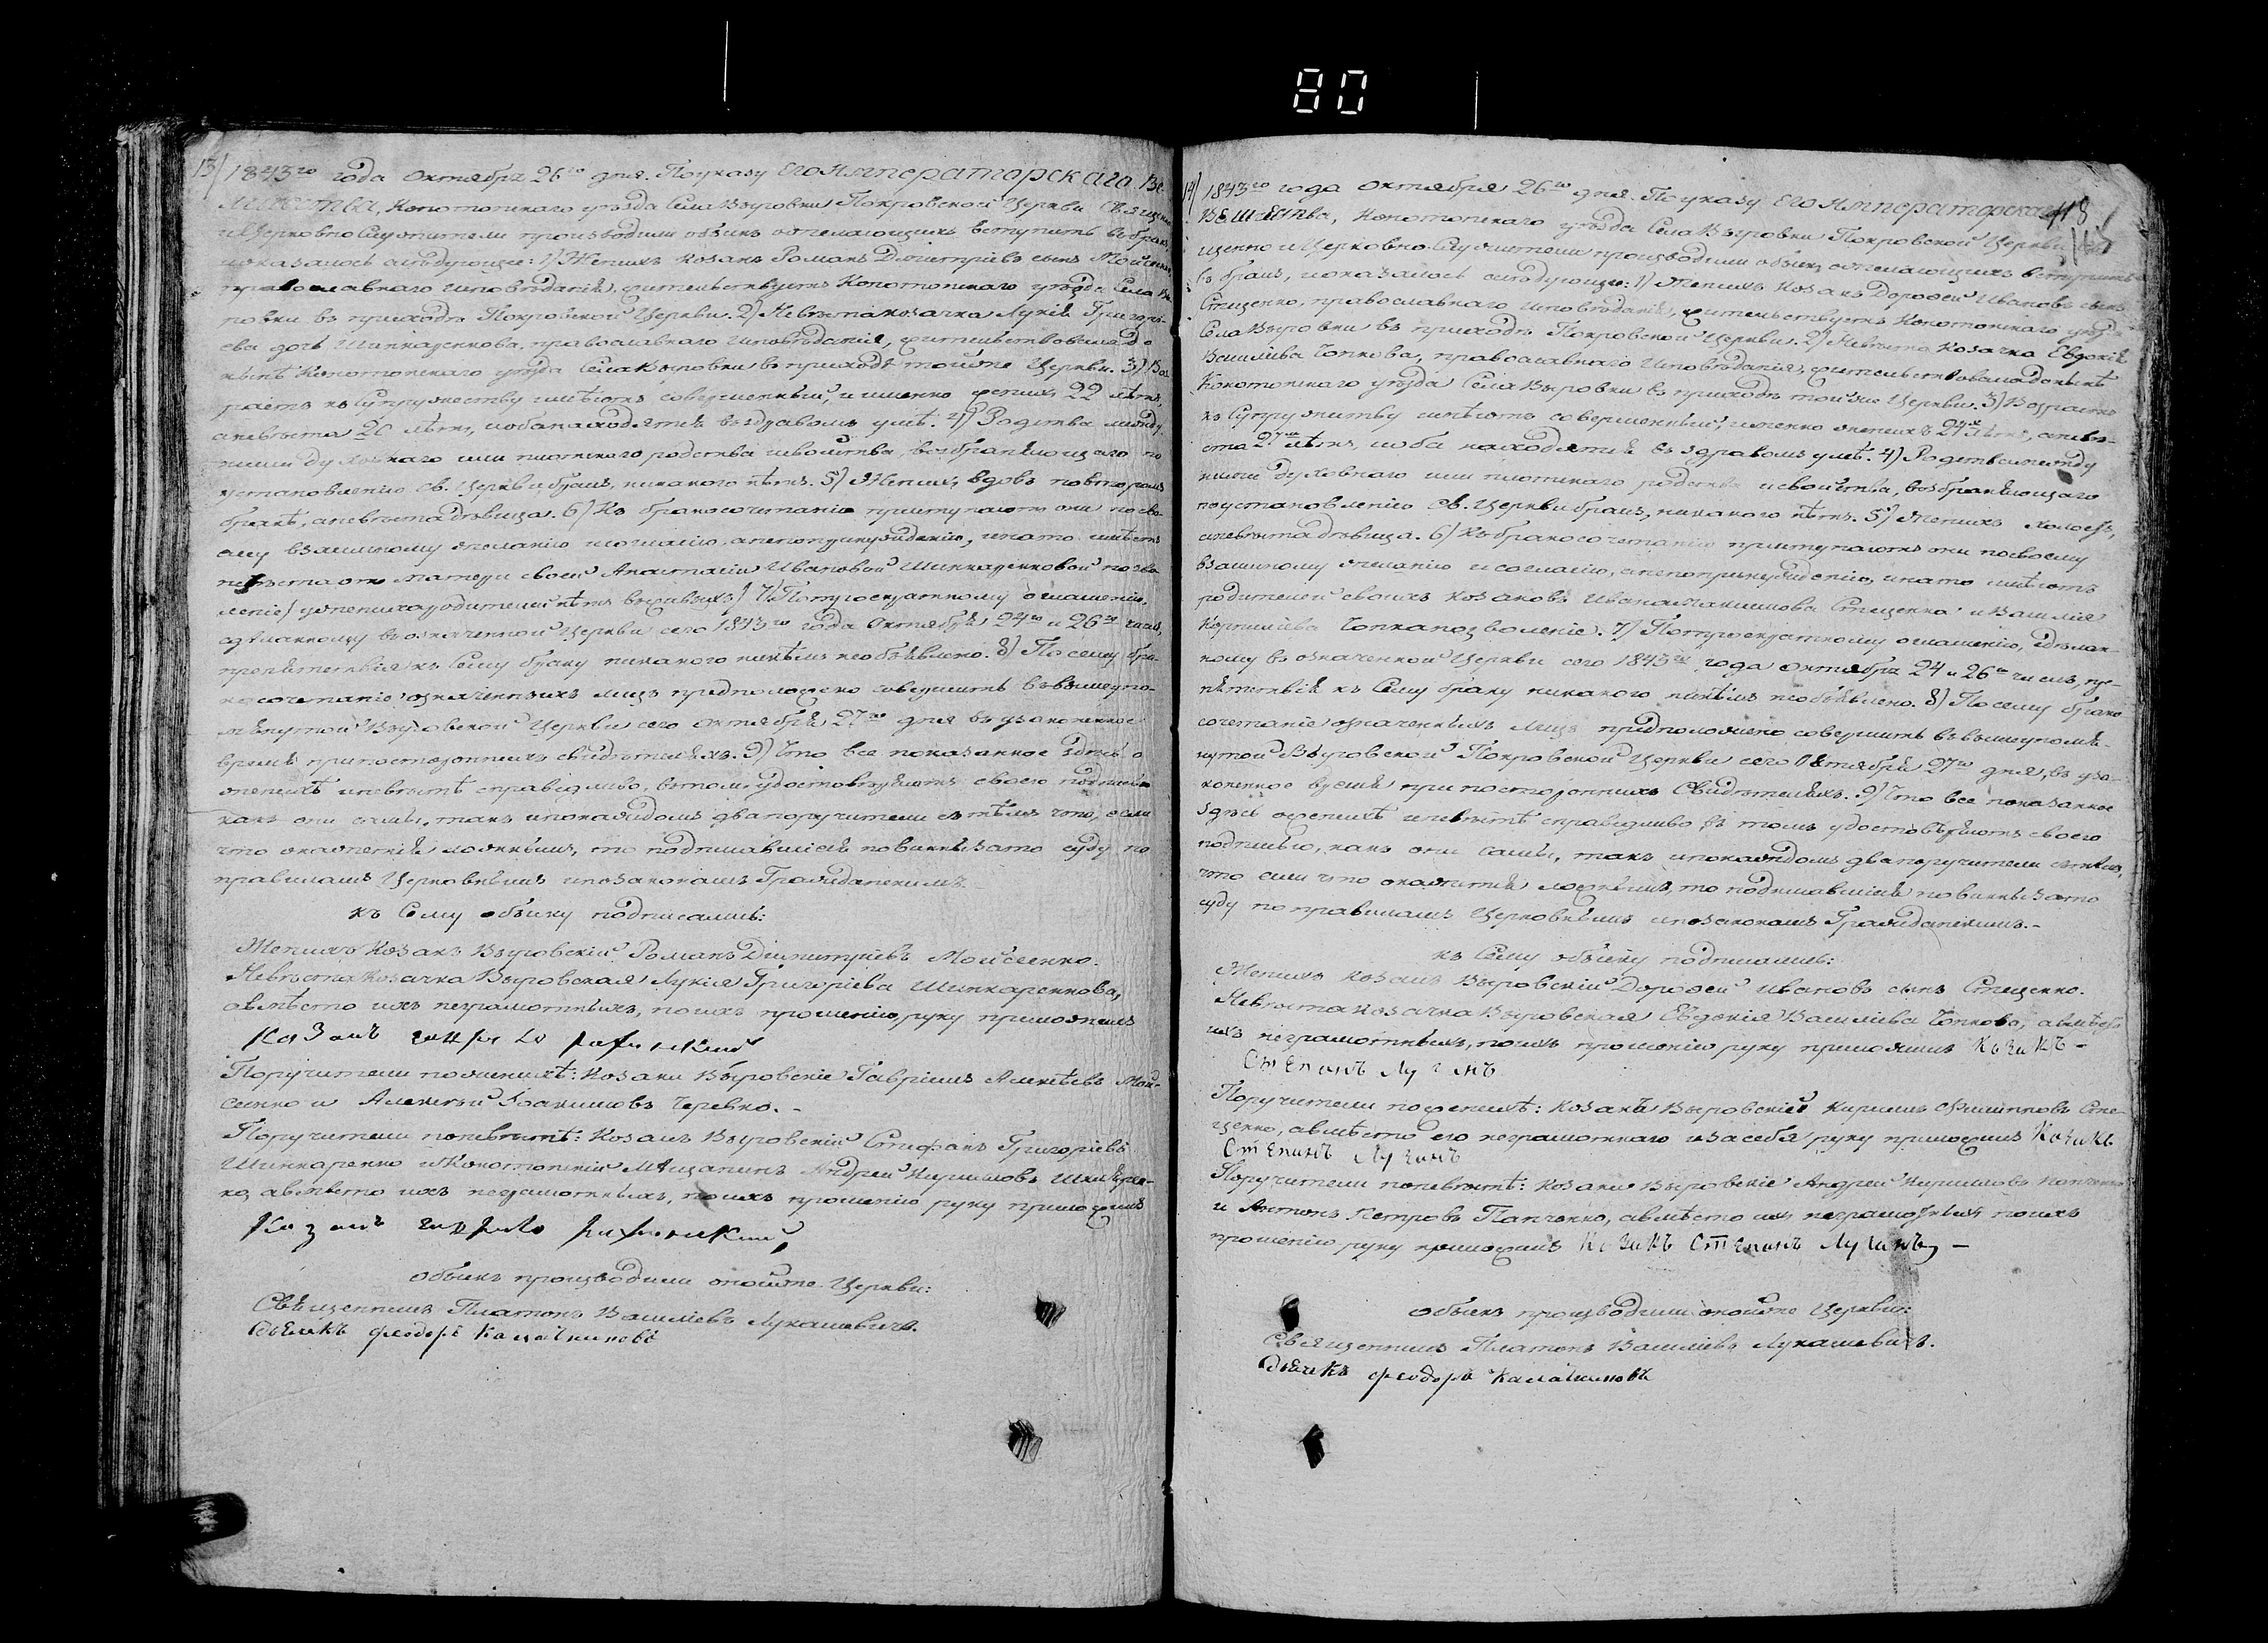 80
13) 1843го года Октября 26го дня. По указу Его Императорскаго Ве-
личества, Конотопскаго уѣзда Села Выровки Покровской Церкви Священно
и Церковно Служители производили обыскъ о желающихъ вступить въ бракъ,
и оказалось слѣдующее: 1) Женихъ козакъ Романъ Димитріевъ сынъ Мойсеенко,
православнаго исповѣданія, жительствуетъ Конотопскаго уѣзда Села Вы-
ровки въ приходѣ Покровской Церкви. 2) Невѣста козачка Лукія Григорі-
ева дочь Шинкаренкова, православнаго исповѣданія, жительствовала до
нынѣ Конотопскаго уѣзда Села Выровки въ приходѣ тойже Церкви. 3) Воз-
растъ къ супружеству имѣютъ совершенный, и именно женихъ 22 лѣтъ,
а невѣста 20 лѣтъ, и оба находятся въ здравомъ умѣ. 4) Родства между
ними духовнаго или плотскаго родства и свойства, возбраняющаго по
установленію св. Церкви бракъ, никакого нѣтъ. 5) Женихъ вдовъ по второмъ
бракѣ, а невѣста дѣвица. 6) Къ бракосочетанію приступаютъ они по сво-
ему взаимному желанію и согласію, а не по принужденію, и на то имѣетъ
невѣста отъ матери своей Анастасіи Ивановой Шинкаренковой позво-
леніе (у жениха родителей нѣтъ въ живыхъ) 7) По троекратному оглашенію,
сдѣланному въ означенной Церкви сего 1843го года Октября 24го и 26го числъ,
препятствія къ сему браку никакого никѣмъ не объявлено. 8) По сему бра-
косочетаніе означенныхъ лицъ предположено совершить въ вышеупо-
мянутой Выровской Церкви сего Октября 27го дня въ узаконенное
время при постороннихъ свидѣтеляхъ. 9) Что все показанное здѣсь о
женихѣ и невѣстѣ справедливо, въ томъ удостовѣряютъ своею подписью
какъ они сами, такъ и по каждомъ два поручители съ тѣмъ что, если
что окажется ложнымъ, то подписавшіеся повинны за то суду по
правиламъ Церковнымъ и по законамъ Гражданскимъ.
къ Сему обыску подписались:
Женихъ козакъ Выровскій Романъ Димитріевъ Мойсеенко.
Невѣста козачка Выровская Лукія Григоріева Шинкаренкова,
а вмѣсто ихъ неграмотныхъ, по ихъ прошенію, руку приложилъ
Козакъ
Поручители по женихѣ: козаки Выровскіе Гавріилъ Алексѣевъ Мой-
сеенко и Алексѣй Іоакимовъ Черевко. -
Поручители по невѣстѣ: Козакъ Выровскій Стефанъ Григоріевъ
Шинкаренко и Конотопскій Мѣщанинъ Андрей Кириловъ
ко, а вмѣсто ихъ неграмотныхъ, по ихъ прошенію руку приложилъ
Козакъ
Обыскъ производили тойже Церкви:
Священникъ Платонъ Васильевъ Лукашевичъ.
Дьячкъ феодоръ
14) 1843го года Октября 26го дня. По указу Его Императорскаго 118
Величества, Конотопскаго уѣзда Села Выровки Покровской Церкви Свя-
щенно и Церковно-Служители производили обыскъ о желающихъ вступить
въ бракъ, и оказалось слѣдующее: 1) Женихъ козакъ Дорофей Ивановъ сынъ
Стеценко, православнаго исповѣданія, жительствуетъ Конотопскаго уѣзда
Села Выровки въ приходѣ Покровской Церкви. 2) Невѣста Козачка Евдокія
Васильева Чопкова, православнаго исповѣданія, жительствовала до нынѣ
Конотопскаго уѣзда Села Выровки въ приходѣ тойже Церкви. 3) Возрастъ
къ супружеству имѣютъ совершенный, именно женихъ 24 лѣтъ, а невѣ-
ста лѣтъ, и оба находятся въ здравомъ умѣ. 4) Родства между
ними духовнаго или плотскаго родства и свойства, возбраняющаго
по установленію св. Церкви бракъ, никакого нѣтъ. 5) Женихъ холостъ,
а невѣста дѣвица. 6) Къ бракосочетанію приступаютъ они по своему
взаимному желанію и согласію, а не по принужденію, и на то имѣютъ
родителей своихъ козаковъ Ивана Стеценка и Василія
Корнилiева Чопка позволеніе. 7) По троекратному оглашенію, сдѣлан-
ному въ означенной Церкви сего 1843го года Октября 24 и 26го числъ, пре-
пятствія къ сему браку никакого никѣмъ не объявлено. 8) По сему брако-
сочетаніе означенныхъ лицъ предположено совершить въ вышеупомя-
нутой Выровской Покровской Церкви сего Октября 27го дня, въ уза-
коненное время при постороннихъ Свидѣтеляхъ. 9) Что все показанное
здѣсь о женихѣ и невѣстѣ справедливо въ томъ удостовѣряютъ своею
подписью, какъ они сами, такъ и по каждомъ два поручители съ тѣмъ,
что если что окажется ложнымъ, то подписавшіеся повинны за то
суду по правиламъ Церковнымъ и по законамъ Гражданскимъ. -
къ Сему обыску подписались:
Женихъ козакъ Выровскій Дорофей Ивановъ сынъ Стеценко.
Невѣста козачка Выровская Евдокія Васильева Чопкова, а вмѣсто
ихъ неграмотныхъ, по ихъ прошенію руку приложилъ Козакъ -
Степанъ Лучанъ
Поручители по женихѣ: козакъ Выровскій Кирилъ Филиповъ Сте-
ценко, а вмѣсто его неграмотнаго и за себя руку приложилъ Козакъ
Степанъ Лучанъ
Поручители по невѣстѣ: козаки Выровскіе Андрей Кириловъ
и Антонъ Петровъ Панченко, а вмѣсто ихъ неграмотныхъ по ихъ
прошенію руку приложилъ Козакъ Степанъ Лучанъ -
Обыскъ производили тойже Церкви:
Священникъ Платонъ Васильевъ Лукашевичъ.
Дьячкъ феодоръ